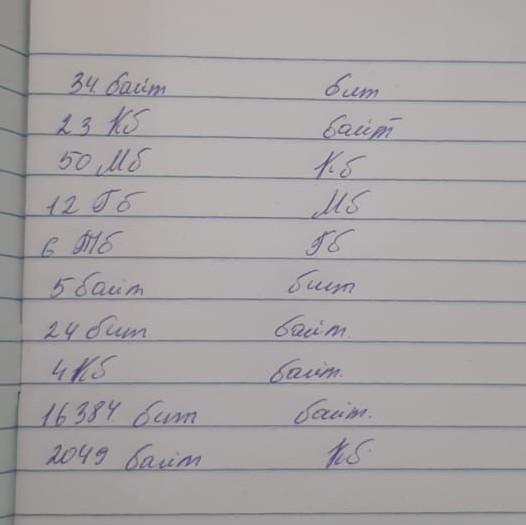 34 байт бит
23 Кб байт
50 Мб Кб
12 Гб Мб
6 Тб Гб
5 байт бит
24 бит байт.
4 Кб байт.
16384 бит байт.
2049 байт Кб.